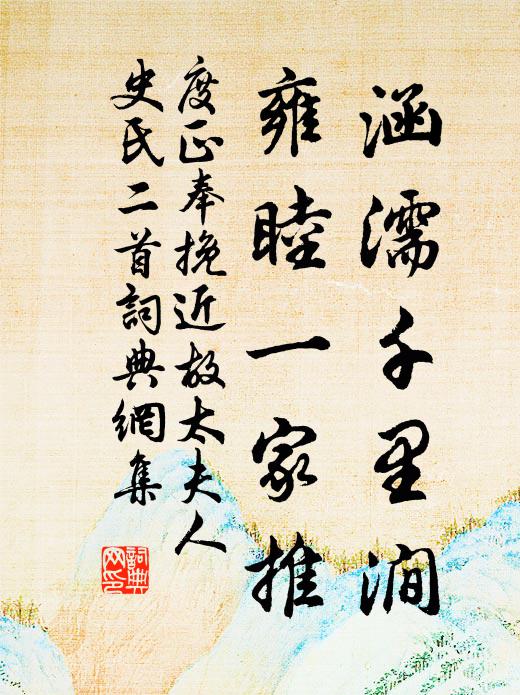 涵濡千里润
雍睦一家推
度正奉挽近故太夫人
史氏二首詞典網集
詞典网印